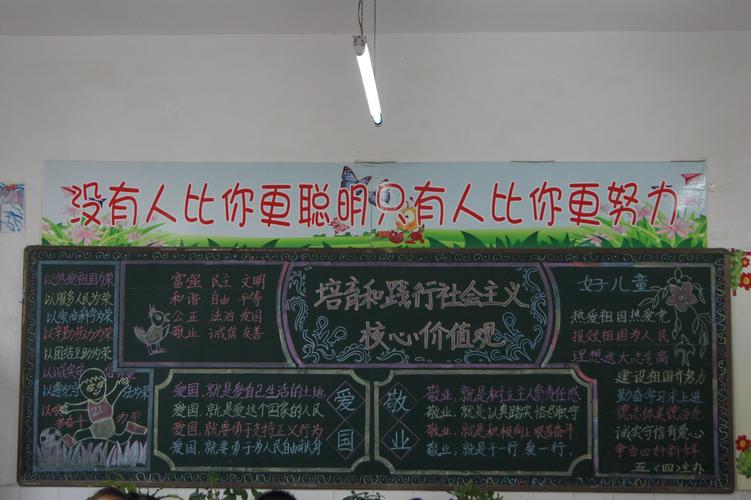 没有人比你更聪明只有人比你更努力
以热爱祖国为荣
以服务人民为荣
以崇尚科学为荣
以辛勤劳动为荣
以团结互助为荣
以诚实守信为荣
以遵纪守 为荣
以艰
奋斗
为荣
21
富强 民主 文明
和谐 自由 平等
公正 法治 爱国
敬业 诚信 友善
培育和践行社会主义
核心价值观
好儿童
热爱祖国热爱党
报效祖国为人民
理想远大志气高
建设祖国齐努力
勤奋学习求上进
德志体美德
诚实守信有爱心
争当四好
五〈四〉主办
爱国,就是爱自己生活的土地
爱国,就是爱这个国家的人民
爱国,就要勇于支持正义行为
爱国,就要勇于为人民自由献身
爱国
敬业
敬业,就是树立主人翁责任感
敬业,就是认真踏实恪尽职守
敬业,就是积极向上艰苦奋斗
敬业,就是干一行 爱一行。